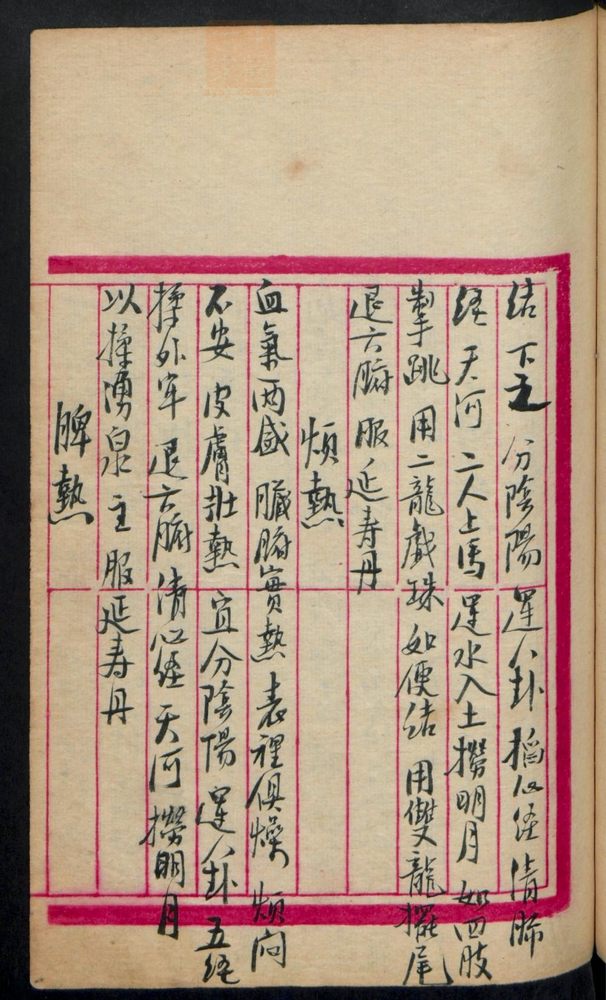 結 下之 分陰陽 運八卦 掐心經 清肺
經 天河 二人上馬 運水入土 撈明月 如四肢
掣跳 用二龍戲珠 如便結 用雙龍擺尾
退六腑 服延寿丹
煩熱
血氣两盛 臟腑實熱 表裡俱燥 煩闷
不安 皮膚壯熱 宜分陰陽 運八卦 五經
揉外牢 退六腑 清心經 天河 撈明月
以揉湧泉 主服延寿丹
脾熱